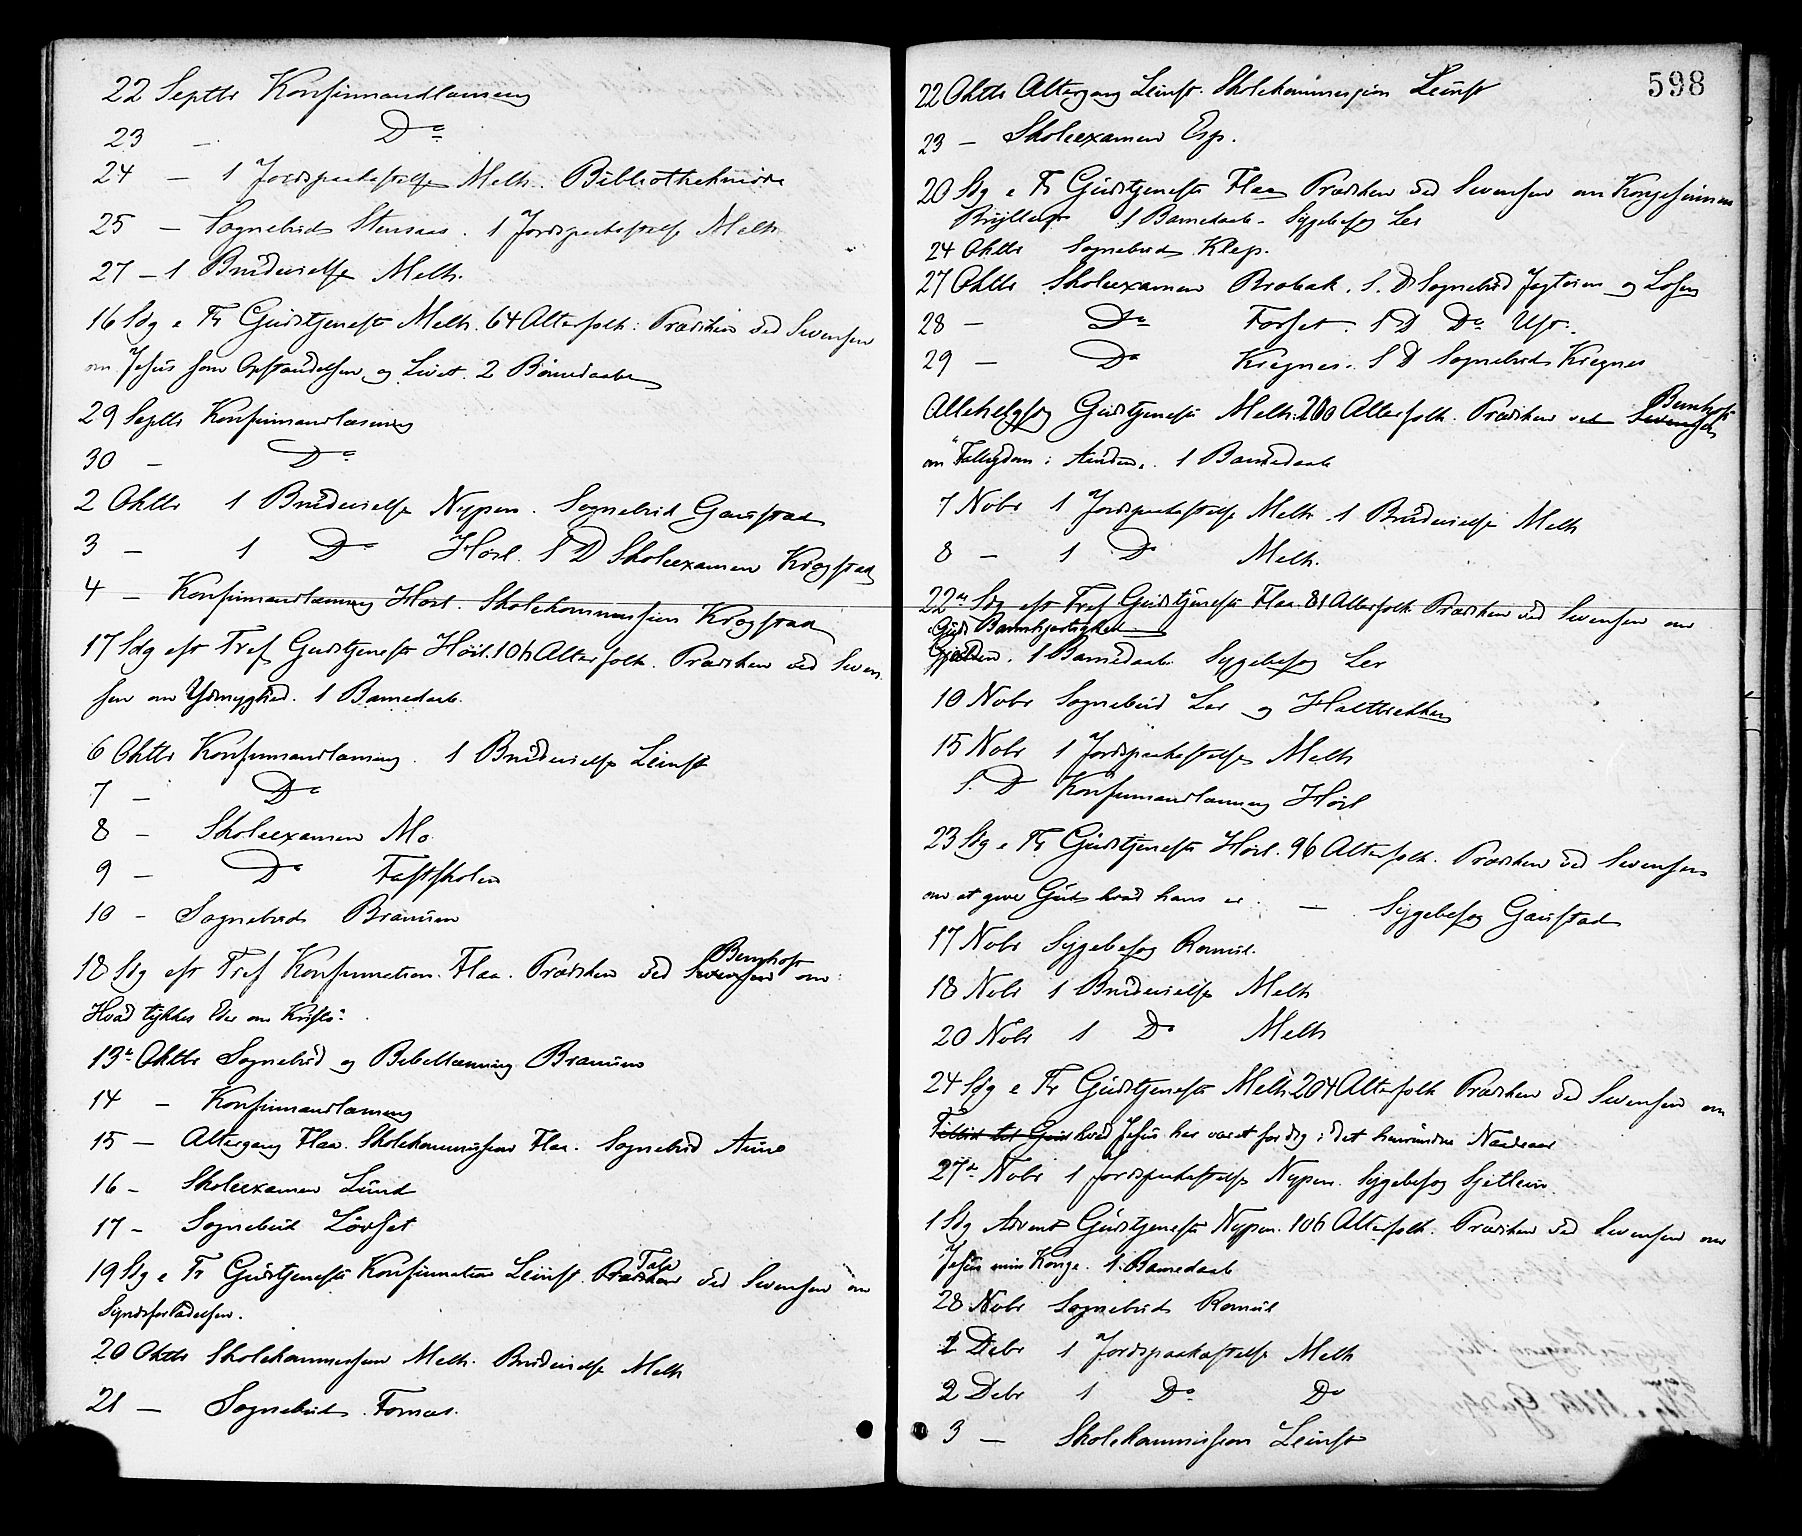 22 Septbr Konfirmandlæsning
23 – Do
24 – 1 Jordspaakastelse Melh.
25 – Sognebud Stensaas. 1 Jordspaakastelse Melh.
27 – 1 Brudevielse Melh.
16 Sdg e Tr Gudstjeneste Melh. 64 Alterfolk. Prædiken ved Svensen
om Jesus som Opstandelsen og Livet. 2 Barnedaabe
29 Septbr Konfirmandlæsning
30 – Do
2 Oktbr 1 Brudevielse Nypen. Sognebud Gaustad
3 – 1 Do Høil. S D Skoleexamen Krogstad
4 – Konfirmandlæsning Høil. Skolekommission Krogstad
17 Sdg eft Tref Gudstjeneste Høil. 106 Alterfolk. Prædiken ved Sven-
sen om Ydmyghed. 1 Barnedaab.
6 Oktbr Konfirmandlæsning. 1 Brudevielse Leinst
7 – Do
8 – Skoleexamen Mo
9 – Do Fastskolen
10 – Sognebud Braauen
Bernhoft
18 Sdg eft Tref Konfirmation. Flaa. Prædiken ved Svensen om:
Hvad tykkes Eder om Kristo".
13de Oktbr Sognebud og Bibellæsning Braauen
14 – Konfirmandlæsning
15 – Altergang Flaa. Skolekommission Flaa. Sognebud Aune
16 – Skoleexamen Lund
17 – Sognebud Løvset
Tale
19 Sdg e Tr Gudstjeneste Konfirmation Leinst. Prædiken ved Svensen om
Syndsforladelsen.
20 Oktbr Skolekommission Melh. Brudevielse Melh
21 – Sognebud. Fornæs.
598
22 Oktbr Altergang Leinst. Skolekommission Leinst
23 – Skoleexamen Esp.
20 Sdg e Tr Gudstjeneste Flaa Prædiken ved Svensen om Kongesønnens
Bryllup 1 Barnedaab. Sygebesøg Ler
24 Oktbr Sognebud Klep.
27 Oktbr Skoleexamen Brobak. S. D Sognebud og Losen
28 – Do Forset. S D Do Ust.
29 – Do Kregnes. S D Sognebud Kregnes
Bernhoft
Allehelgsdg Gudstjeneste Melh. 200 Alterfolk. Prædiken ved Svensen
om "Fattigdom i Aanden". 1 Barnedaab
7 Nobr 1 Jordspaakastelse Melh. 1 Brudevielse Melh
8 – 1 Do Melh.
22de Sdg eft Tref Gudstjeneste Flaa 81 Alterfolk Prædiken ved Svensen om
Guds Barmhjertighed
Gjælden. 1 Barnedaab. Sygebesøg Ler
10 Nobr Sognebud Ler og Halttrekken
15 Nobr 1 Jordspaakastelse Melh
S. D Konfirmandlæsning Høil
23 Sdg e Tr Gudstjeneste Høil. 96 Alterfolk. Prædiken ved Svensen
om at give Gud hvad hans er. – Sygebesøg Gaustad
17 Nobr Sygebesøg Romul.
18 Nobr 1 Brudevielse Melh
20 Nobr 1 Do Melh
24 Sdg e Tr Gudstjeneste Melh 204 Alterfolk Prædiken ved Svensen om
Tillid til Gud hvad Jesus har været for dig i det henrundne Naadeaar
27de Nobr 1 Jordspaakastelse Nypen. Sygebesøg Sjetlein.
1 Sdg Advent Gudstjeneste Nypen. 106 Alterfolk. Prædiken ved Svensen om
Jesus min Konge. 1 Barnedaab
28 Nobr Sognebud Romul
1 Debr 1 Jordspaakastelse Melh
2 Debr 1 Do Do
3 – Skolekommission Leinst